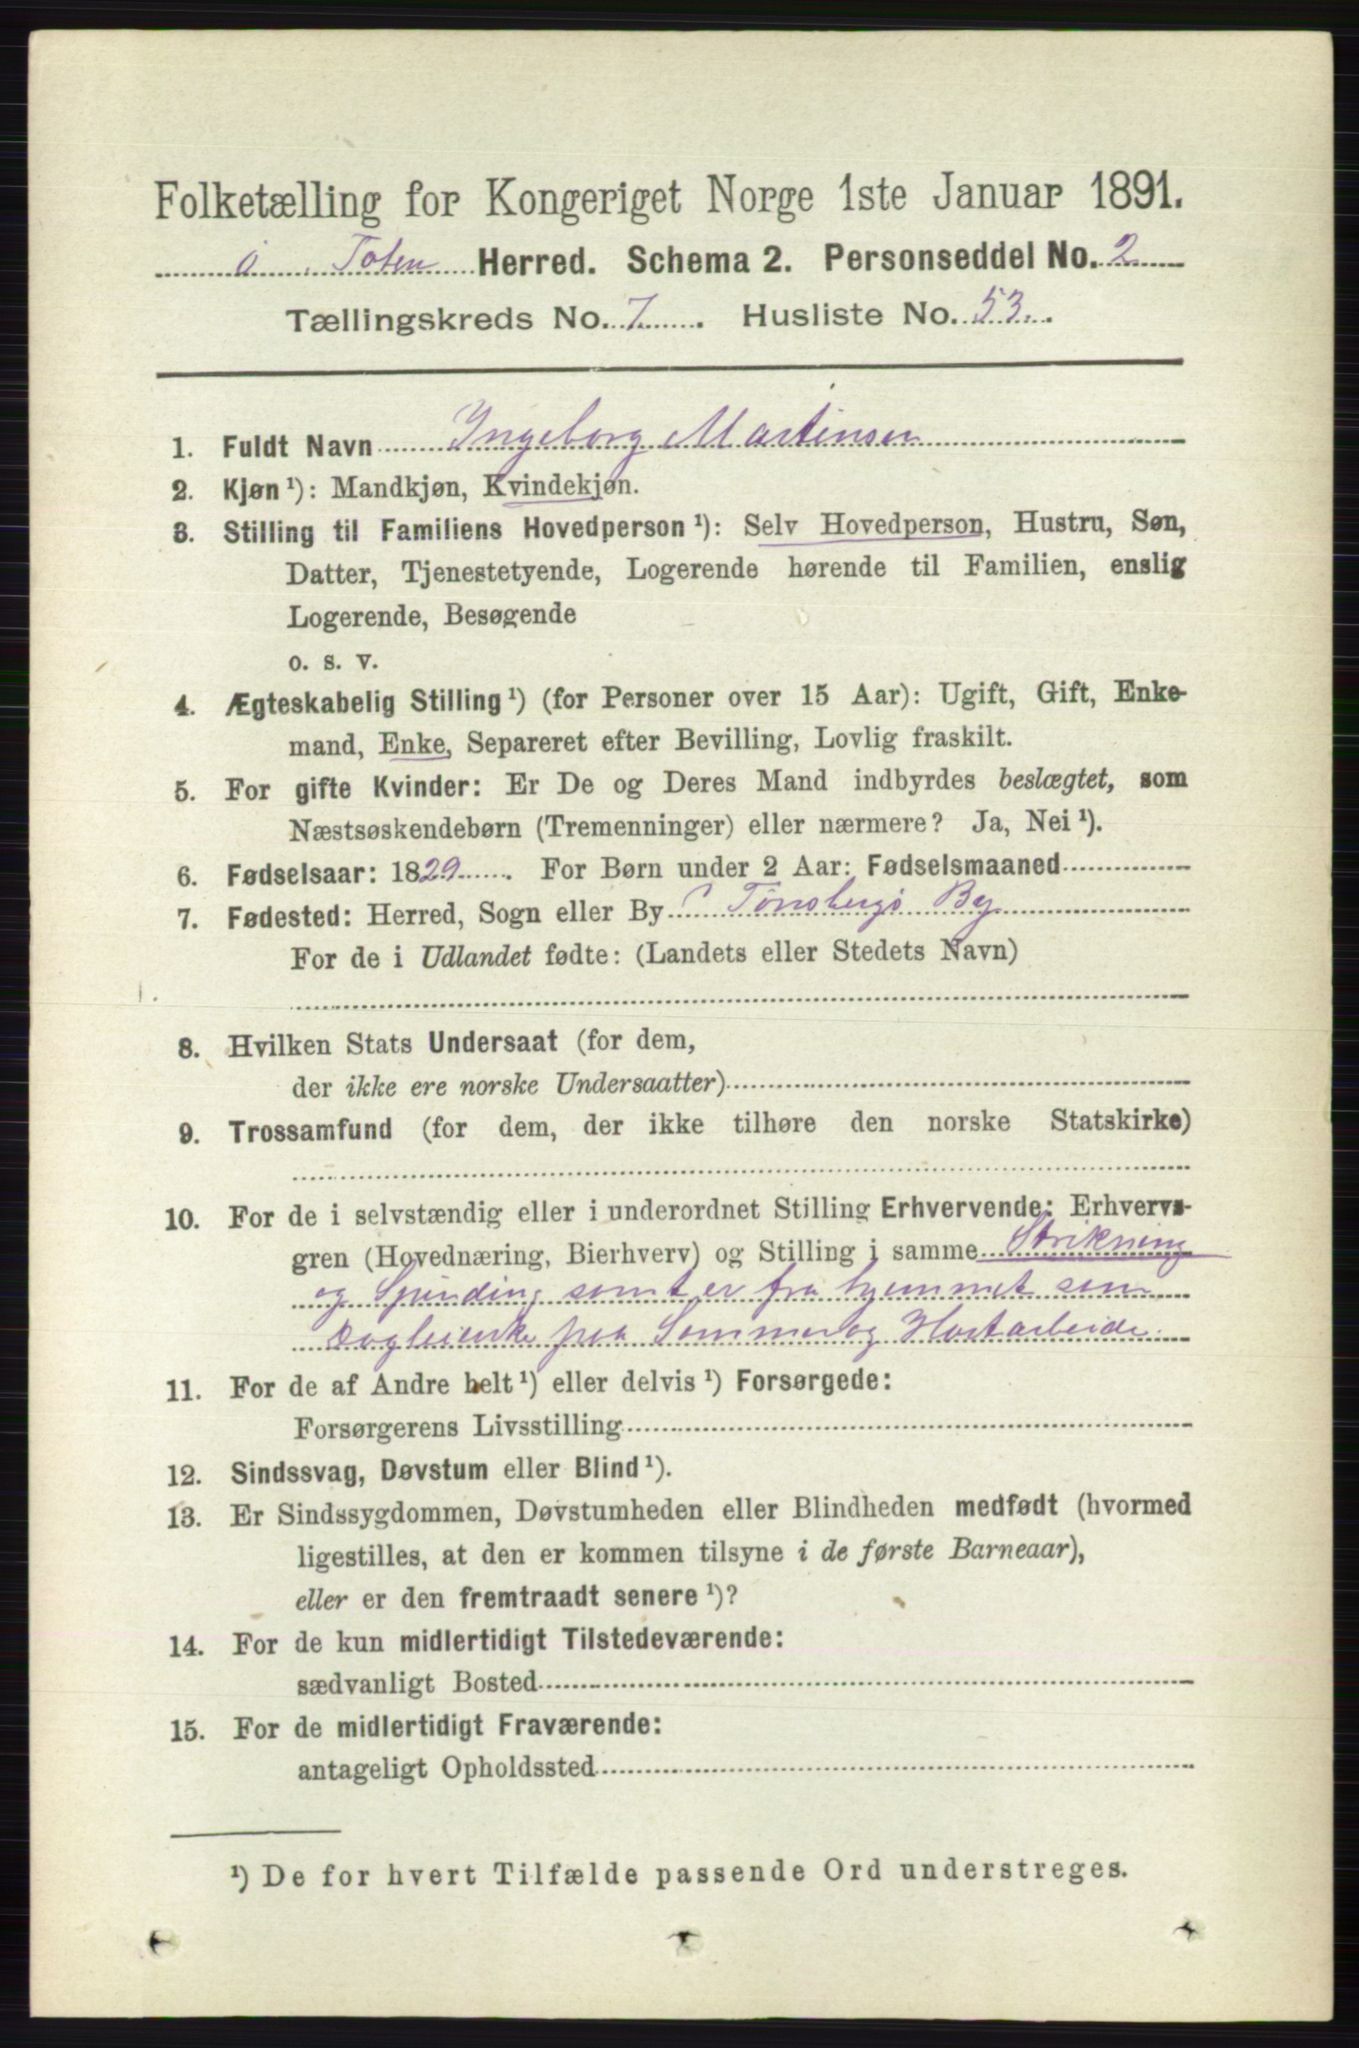 Folketælling for Kongeriget Norge 1ste Januar 1891.
Ø. Toten Herred. Schema 2. Personseddel No. 2
Tællingskreds No. 7. Husliste No. 53.
1. Fuldt Navn Ingeborg Martinsen
2. Kjøn ¹): Mandkjøn, Kvindekjøn.
3. Stilling til Familiens Hovedperson ¹): Selv Hovedperson, Hustru, Søn,
Datter, Tjenestetyende, Logerende hørende til Familien, enslig
Logerende, Besøgende
o. s. v.
4. Ægteskabelig Stilling ¹) (for Personer over 15 Aar): Ugift, Gift, Enke-
mand, Enke, Separeret efter Bevilling, Lovlig fraskilt.
5. For gifte Kvinder: Er De og Deres Mand indbyrdes beslægtet, som
Næstsøskendebørn (Tremenninger) eller nærmere? Ja, Nei ¹).
6. Fødselsaar: 1829. For Børn under 2 Aar: Fødselsmaaned
7. Fødested: Herred, Sogn eller By Tønsbergs By
For de i Udlandet fødte: (Landets eller Stedets Navn)
8. Hvilken Stats Undersaat (for dem,
der ikke ere norske Undersaatter)
9. Trossamfund (for dem, der ikke tilhøre den norske Statskirke)
10. For de i selvstændig eller i underordnet Stilling Erhvervende: Erhvervs-
gren (Hovednæring, Bierhverv) og Stilling i samme Strikning
og Spinding samt er fra hjemmet som
Dagleierske paa Sommer og Høstarbeide.
11. For de af Andre helt ¹) eller delvis ¹) Forsørgede:
Forsørgerens Livsstilling
12. Sindssvag, Døvstum eller Blind ¹).
13. Er Sindssygdommen, Døvstumheden eller Blindheden medfødt (hvormed
ligestilles, at den er kommen tilsyne i de første Barneaar),
eller er den fremtraadt senere ¹)?
14. For de kun midlertidigt Tilstedeværende:
sædvanligt Bosted
15. For de midlertidigt Fraværende:
antageligt Opholdssted
¹) De for hvert Tilfælde passende Ord understreges.